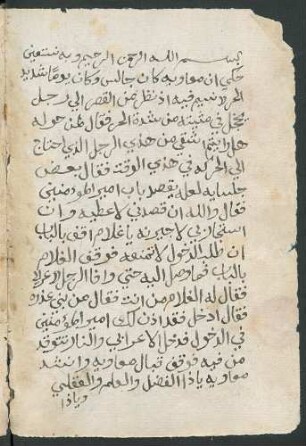 بسم الله الرحمن الرحيم وبه نستعين
حكي ان معاويه كان جالس وكان يوما شديد
الحر لا نسيم فيه اذ نظر من القصر الي رجل
يحجل في مشيته من شدة الحر فقال لمن حوله
هل رايتم اشقي من هذي الرجل الذي احتاج
الي الحركه في هذي الوقت فقال بعض
جلسايه لعله يقصد باب امير المومنين
فقال والله ان قصدني لاعطيه وان
استجار بي لاجيرنه يا غلام اقف بالباب
ان طلب الدخول لا تمنعه فوقف الغلام
بالباب فما وصل اليه حتي وافا الرجل الاعرابي
فقال له الغلام من انت فقال من بني عذره
فقال ادخل فقد اذن لك امير المومنين
في الدخول فدخل الاعرابي والنار تتوقد
من فيه فوقف قبال معاويه وانشد
معاويه ياذا الفضل والعلم والعقلي
وياذا